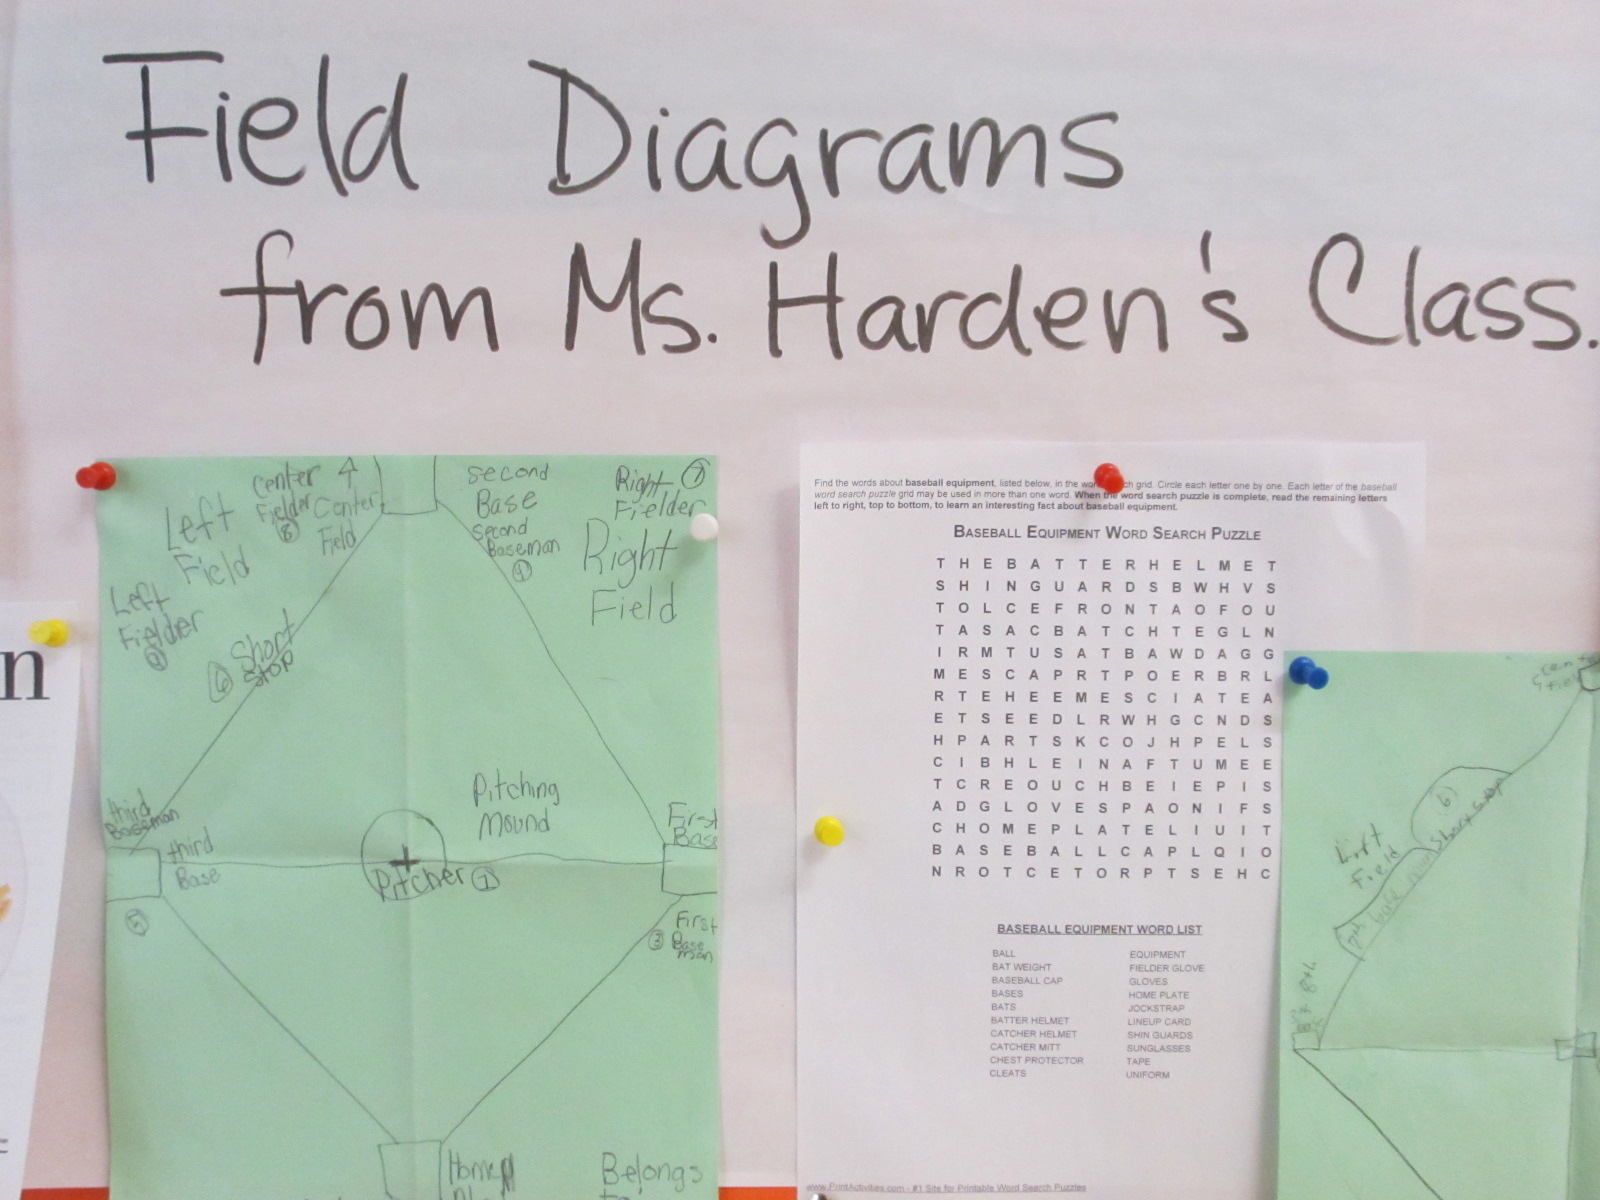 Field Diagrams
from Ms. Harden's Class.
n
Center
Fielder
8
Center
Field
Left
Field
Left
Fielder
Short
Stop
6
second
Base
second
Baseman
4
Right
Fielder
7
Right
Field
third
Baseman
third
Base
5
Pitching
Mound
Pitcher 1
First
Base
First
Base
man
3
Home
Belongs
Find the words about baseball equipment, listed below, in the ch grid. Circle each letter one by one. Each letter of the baseball
word search puzzle grid may be used in more than one word. When the word search puzzle is complete, read the remaining letters
left to right, top to bottom, to learn an interesting fact about baseball equipment.
BASEBALL EQUIPMENT WORD SEARCH PUZZLE
T H E B A T T E R H E L M E T
S H I N G U A R D S B W H V S
T O L C E F R O N T A O F O U
T A S A C B A T C H T E G L N
I R M T U S A T B A W D A G G
M E S C A P R T P O E R B R L
R T E H E E M E S C I A T E A
E T S E E D L R W H G C N D S
H P A R T S K C O J H P E L S
C I B H L E I N A F T U M E E
T C R E O U C H B E I E P I S
A D G L O V E S P A O N I F S
C H O M E P L A T E L I U I T
B A S E B A L L C A P L Q I O
N R O T C E T O R P T S E H C
BASEBALL EQUIPMENT WORD LIST
BALL
BAT WEIGHT
BASEBALL CAP
BASES
BATS
BATTER HELMET
CATCHER HELMET
CATCHER MITT
CHEST PROTECTOR
CLEATS
EQUIPMENT
FIELDER GLOVE
GLOVES
HOME PLATE
JOCKSTRAP
LINEUP CARD
SHIN GUARDS
SUNGLASSES
TAPE
UNIFORM
www.PrintActivities.com - #1 Site for Printable Word Search Puzzles
Left
Field
6
Short stop